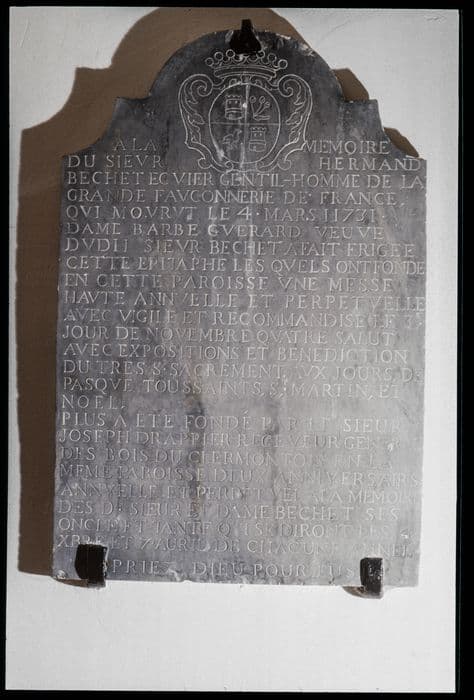 A LA MEMOIRE
DU SIEUR HERMAND
BECHET ECVIER GENTIL-HOMME DE LA
GRANDE FAVCONNERIE DE FRANCE,
QVI MOVRVT LE 4 · MARS 1731 ·
DAME BARBE GVERARD VEUVE
DVDIT SIEVR BECHET A FAIT ERIGEE
CETTE EPITAPHE LES QVELS ONT FONDE
EN CETTE PAROISSE VNE MESSE
HAVTE ANNVELLE ET PERPETVELLE
AVEC VIGILE ET RECOMMANDISE LE
JOUR DE NOVEMBRE QVATRE SALUT
AVEC EXPOSITIONS ET BENEDICTION
DU TRES S · SACREMENT, AVX JOURS DE
PASQVE, TOUSSAINTS, S · MARTIN, ET
NOEL,
PLUS A ETE FONDÉ PAR LE SIEUR
JOSEPH DRAPPIER RECEVEUR
DES BOIS DU CLERMONTOIS EN LA
MEME PAROISSE DEUX ANNIVERSAIRS
ANNVELLE ET PERPETVEL A LA MEMOIR
DES D · SIEUR ET DAME BECHET SES
ONCLE ET TANTE QVI SE DIRONT LES
XBRE ET DE CHACUNE
PRIEZ DIEU POUR EUS